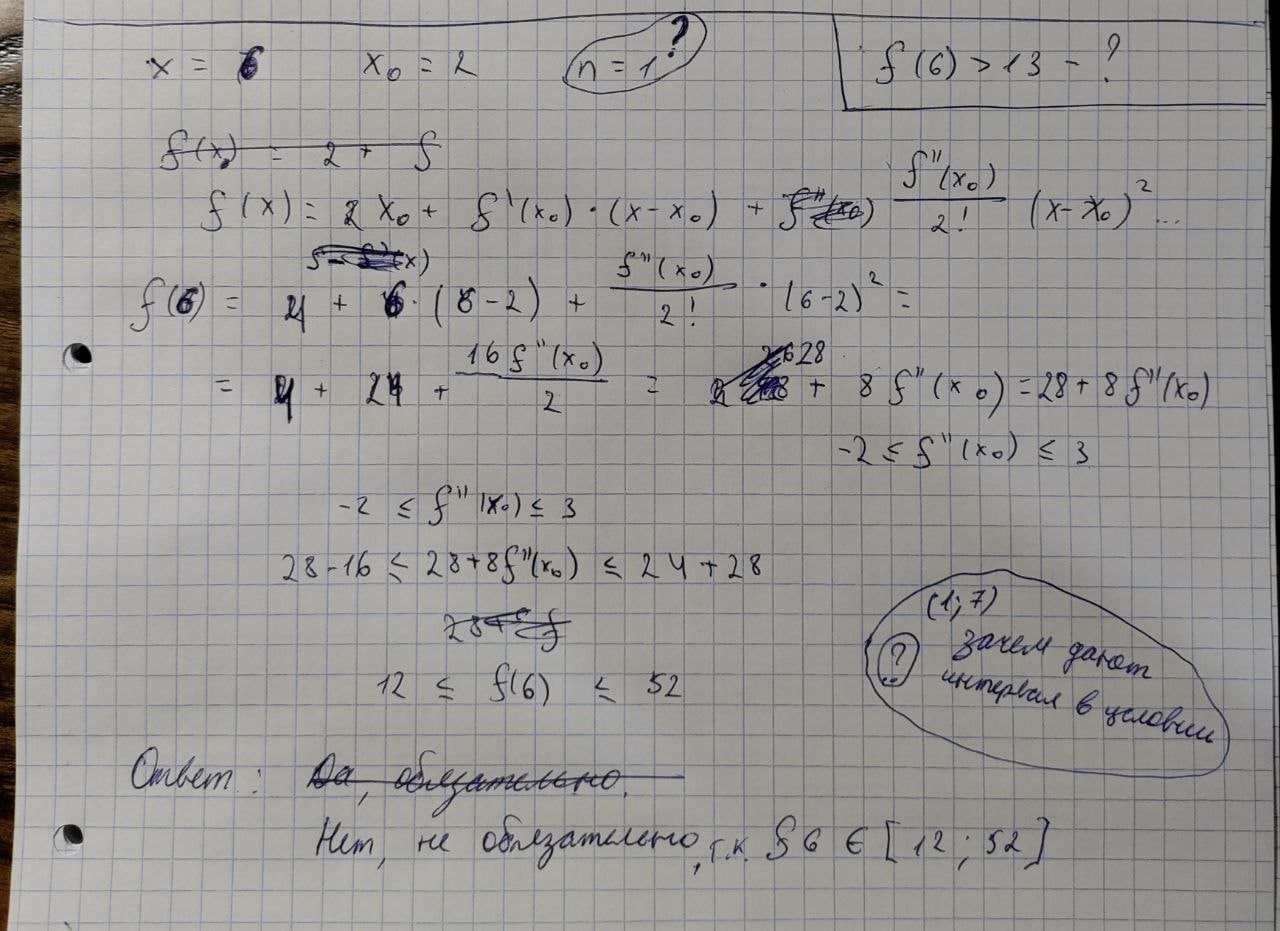 x = 6 x₀ = 2 n = 1 ? f(6) > 13 - ?
f(x₀) = 2 + f
f(x) = 2 x₀ + f'(x₀) · (x - x₀) + f''(x₀) f''(x₀)/2! (x - x₀)² ...
f(6) = 4 + 6 · (6 - 2) + f''(x₀)/2! · (6 - 2)² =
= 4 + 24 + 16 f''(x₀)/2 = 28 + 8 f''(x₀) = 28 + 8 f''(x₀)
-2 ≤ f''(x₀) ≤ 3
-2 ≤ f''(x₀) ≤ 3
28 - 16 ≤ 28 + 8f''(x₀) ≤ 24 + 28
12 ≤ f(6) ≤ 52
(1; 7)
? зачем дают
интервал в условии
Ответ: Да, обязательно.
Нет, не обязательно, т.к. f 6 ∈ [12; 52]